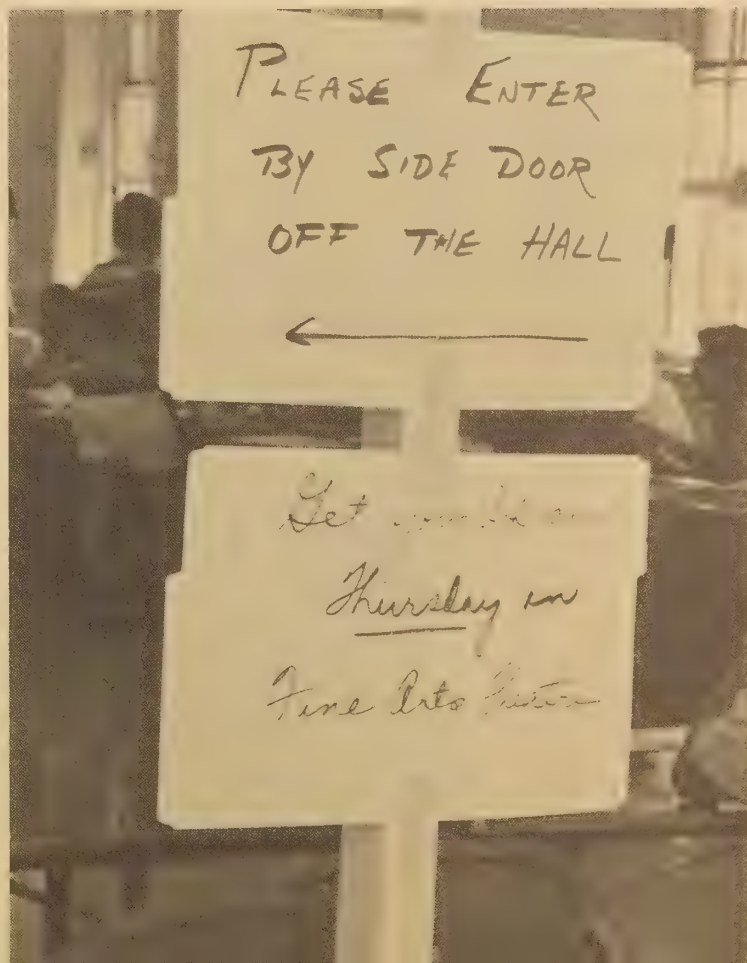 PLEASE ENTER
BY SIDE DOOR
OFF THE HALL
Get
Thursday in
Fine Arts